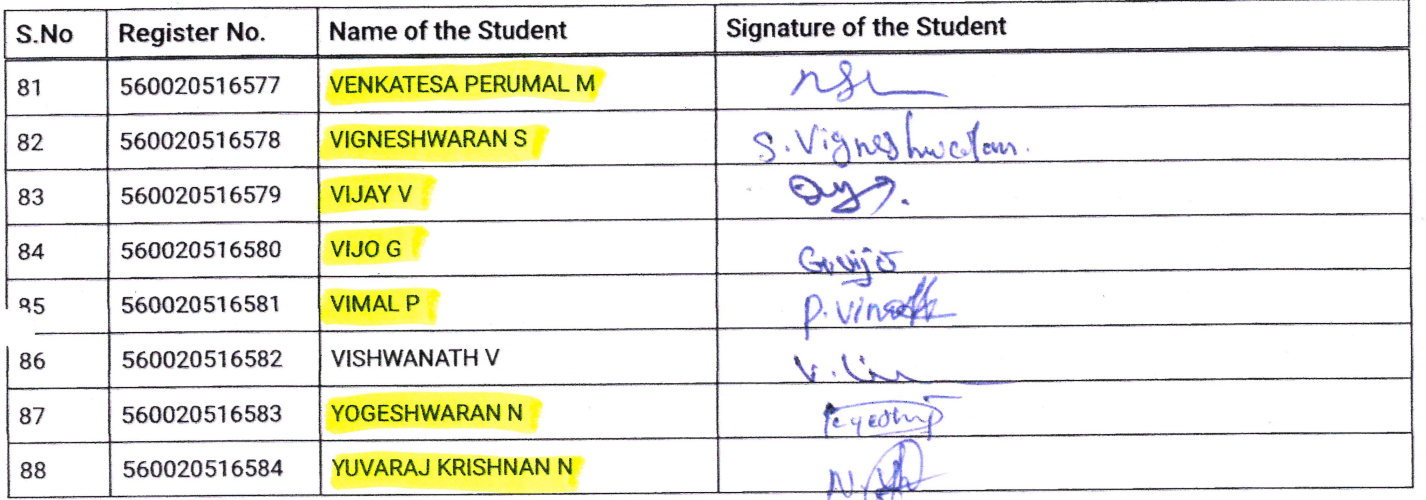 S.No Register No. Name of the Student Signature of the Student
81 560020516577 VENKATESA PERUMAL M
82 560020516578 VIGNESHWARAN S S. Vigneshwaran.
83 560020516579 VIJAY V
84 560020516580 VIJO G G. Vijo
85 560020516581 VIMAL P
86 560020516582 VISHWANATH V
87 560020516583 YOGESHWARAN N
88 560020516584 YUVARAJ KRISHNAN N